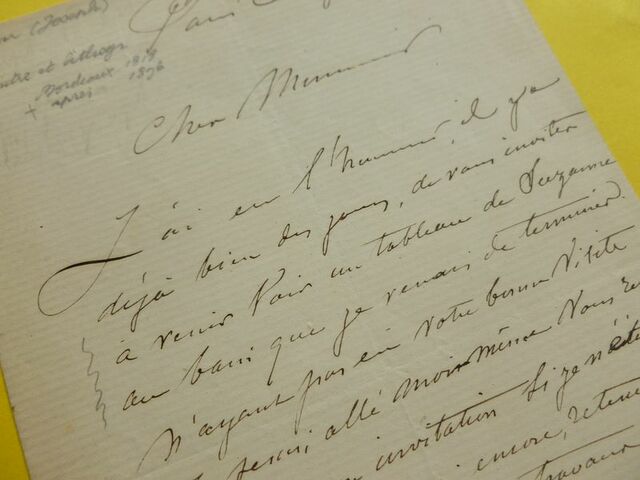 (Joseph)
Peintre et Lithogr
Bordeaux 1819
+ après 1876
Paris
Cher Monsieur
J'ai eu l'honneur, il y a
déjà bien des jours, de vous inviter
à venir voir un tableau de Suzanne
au bain que je venais de terminer.
N'ayant pas eu votre bonne visite
je serais allé moi-même vous
invitation si je n'étais
encore, retenu
travaux